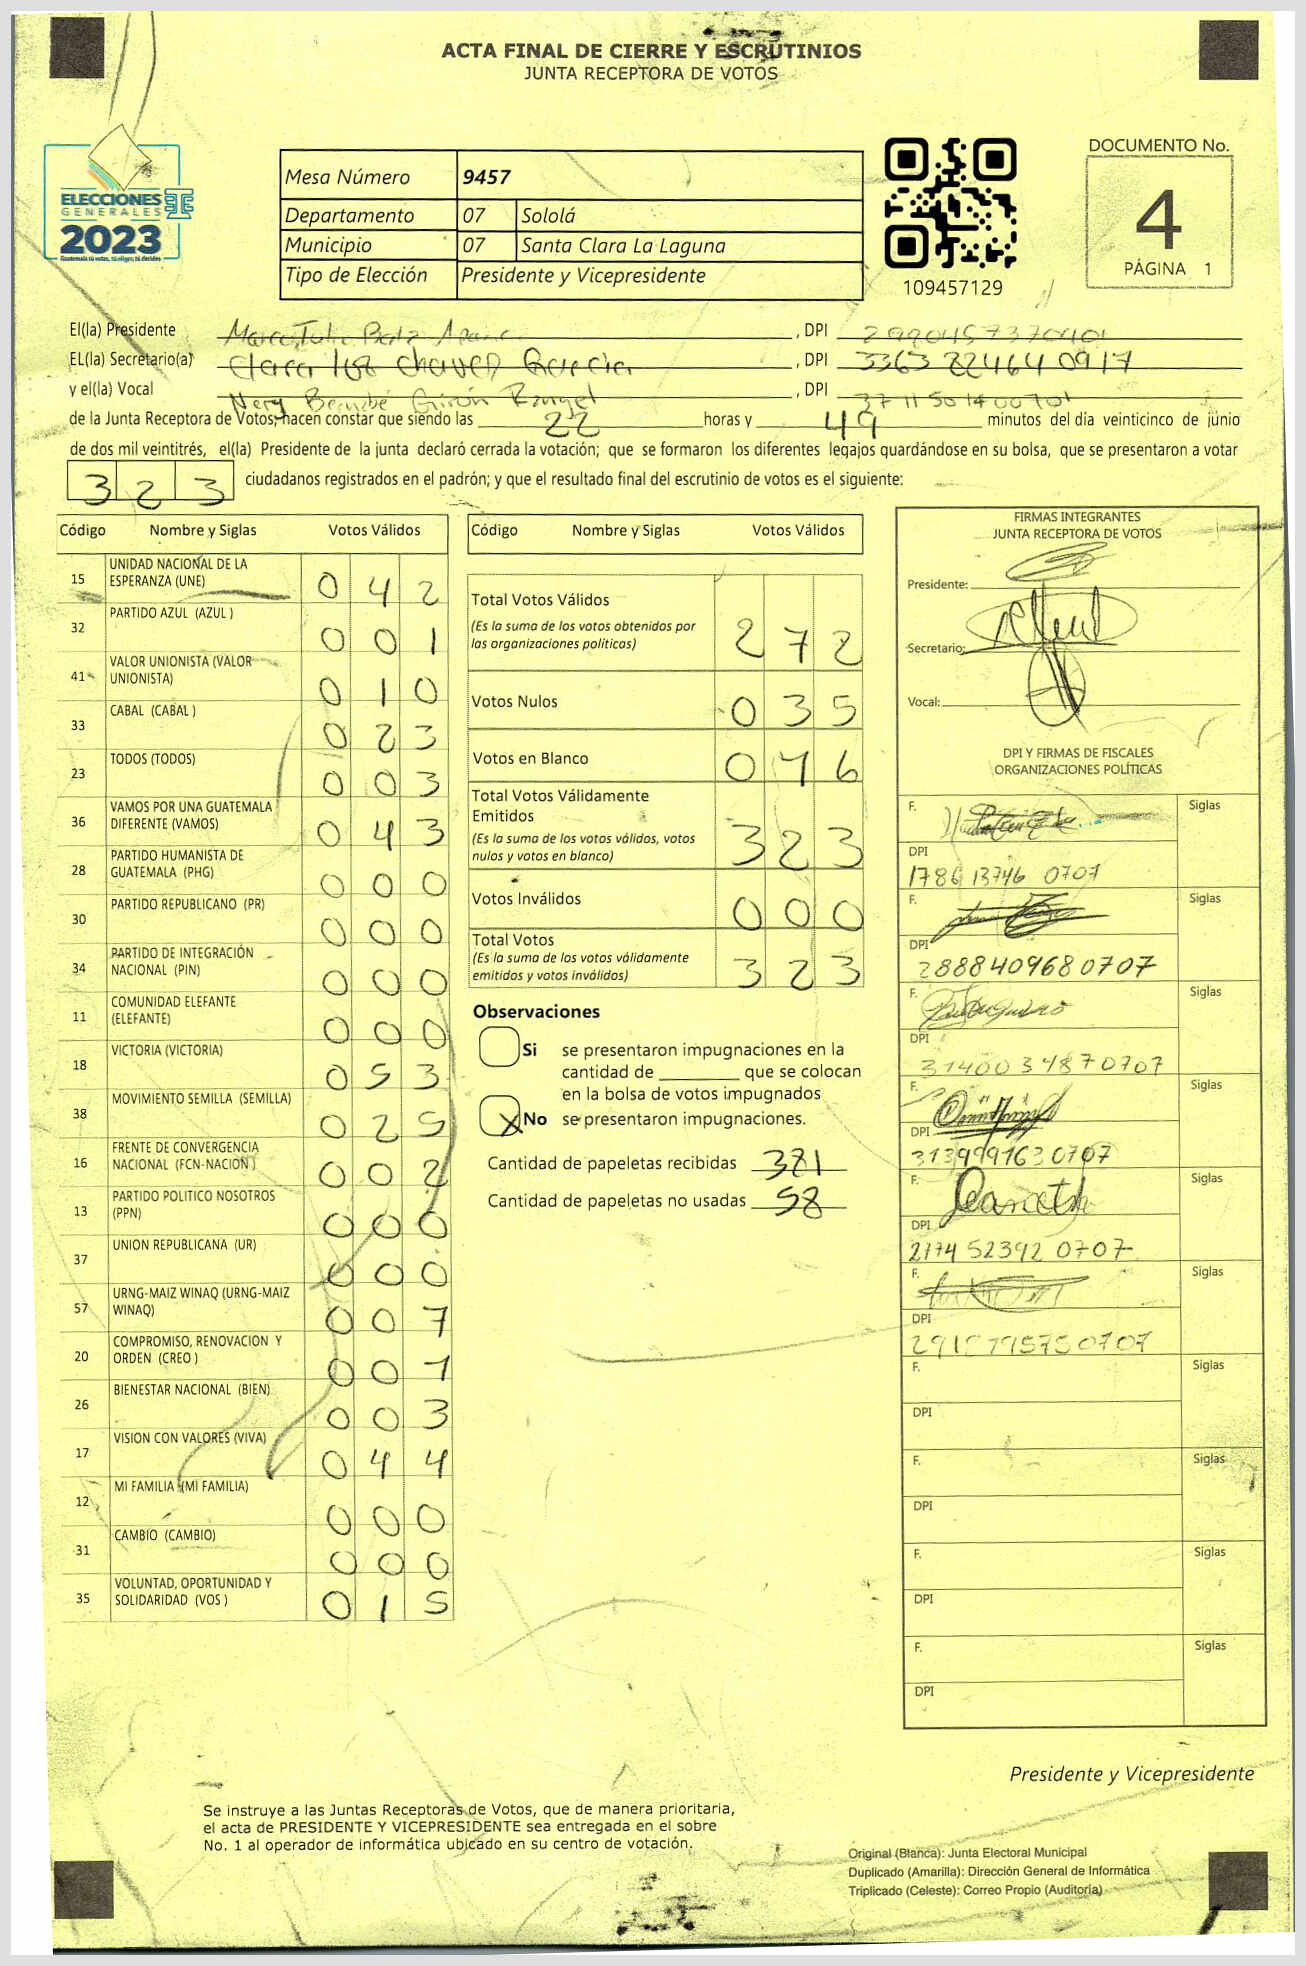 ACTA FINAL DE CIERRE Y ESCRUTINIOS
JUNTA RECEPTORA DE VOTOS
ELECCIONES
GENERALES
2023
Guatemala tú votas, tú eliges, tú decides
Mesa Número 9457
Departamento 07 Sololá
Municipio 07 Santa Clara La Laguna
Tipo de Elección Presidente y Vicepresidente
109457129
DOCUMENTO No.
4
PÁGINA 1
El(la) Presidente Marco Tulio , DPI
EL(la) Secretario(a) Clara Chavez García , DPI 3363 22464 0917
y el(la) Vocal Nery Bernabé Girón Rangel , DPI
de la Junta Receptora de Votos, hacen constar que siendo las 22 horas y 49 minutos del día veinticinco de junio
de dos mil veintitrés, el(la) Presidente de la junta declaró cerrada la votación; que se formaron los diferentes legajos quardándose en su bolsa, que se presentaron a votar
323 ciudadanos registrados en el padrón; y que el resultado final del escrutinio de votos es el siguiente:
Código Nombre y Siglas Votos Válidos
15 UNIDAD NACIONAL DE LA ESPERANZA (UNE) 0 4 2
32 PARTIDO AZUL (AZUL ) 0 0 1
41 VALOR UNIONISTA (VALOR UNIONISTA) 0 1 0
33 CABAL (CABAL ) 0 2 3
23 TODOS (TODOS) 0 0 3
36 VAMOS POR UNA GUATEMALA DIFERENTE (VAMOS) 0 4 3
28 PARTIDO HUMANISTA DE GUATEMALA (PHG) 0 0 0
30 PARTIDO REPUBLICANO (PR) 0 0 0
34 PARTIDO DE INTEGRACIÓN NACIONAL (PIN) 0 0 0
11 COMUNIDAD ELEFANTE (ELEFANTE) 0 0 0
18 VICTORIA (VICTORIA) 0 5 3
38 MOVIMIENTO SEMILLA (SEMILLA) 0 2 5
16 FRENTE DE CONVERGENCIA NACIONAL (FCN-NACION ) 0 0 2
13 PARTIDO POLITICO NOSOTROS (PPN) 0 0 0
37 UNION REPUBLICANA (UR) 0 0 0
57 URNG-MAIZ WINAQ (URNG-MAIZ WINAQ) 0 0 7
20 COMPROMISO, RENOVACION Y ORDEN (CREO ) 0 0 1
26 BIENESTAR NACIONAL (BIEN) 0 0 3
17 VISION CON VALORES (VIVA) 0 4 4
12 MI FAMILIA (MI FAMILIA) 0 0 0
31 CAMBIO (CAMBIO) 0 0 0
35 VOLUNTAD, OPORTUNIDAD Y SOLIDARIDAD (VOS ) 0 1 5
Código Nombre y Siglas Votos Válidos
Total Votos Válidos 2 7 2
(Es la suma de los votos obtenidos por
las organizaciones politicas)
Votos Nulos 0 3 5
Votos en Blanco 0 1 6
Total Votos Válidamente
Emitidos 3 2 3
(Es la suma de los votos válidos, votos
nulos y votos en blanco)
Votos Inválidos 0 0 0
Total Votos 3 2 3
(Es la suma de los votos válidamente
emitidos y votos inválidos)
Observaciones
Si se presentaron impugnaciones en la
cantidad de ________ que se colocan
en la bolsa de votos impugnados
X No se presentaron impugnaciones.
Cantidad de papeletas recibidas 381
Cantidad de papeletas no usadas 58
FIRMAS INTEGRANTES
JUNTA RECEPTORA DE VOTOS
Presidente:
Secretario:
Vocal:
DPI Y FIRMAS DE FISCALES
ORGANIZACIONES POLÍTICAS
F. Siglas
DPI
1786 13746 0707
F. Siglas
DPI
2888409680707
F. Siglas
DPI
3140034870707
F. Siglas
DPI
3139991630707
F. Siglas
DPI
2174 52392 0707
F. Siglas
DPI
F. Siglas
DPI
F. Siglas
DPI
F. Siglas
DPI
F. Siglas
DPI
Presidente y Vicepresidente
Se instruye a las Juntas Receptoras de Votos, que de manera prioritaria,
el acta de PRESIDENTE Y VICEPRESIDENTE sea entregada en el sobre
No. 1 al operador de informática ubicado en su centro de votación.
Original (Blanca): Junta Electoral Municipal
Duplicado (Amarilla): Dirección General de Informática
Triplicado (Celeste): Correo Propio (Auditoría)